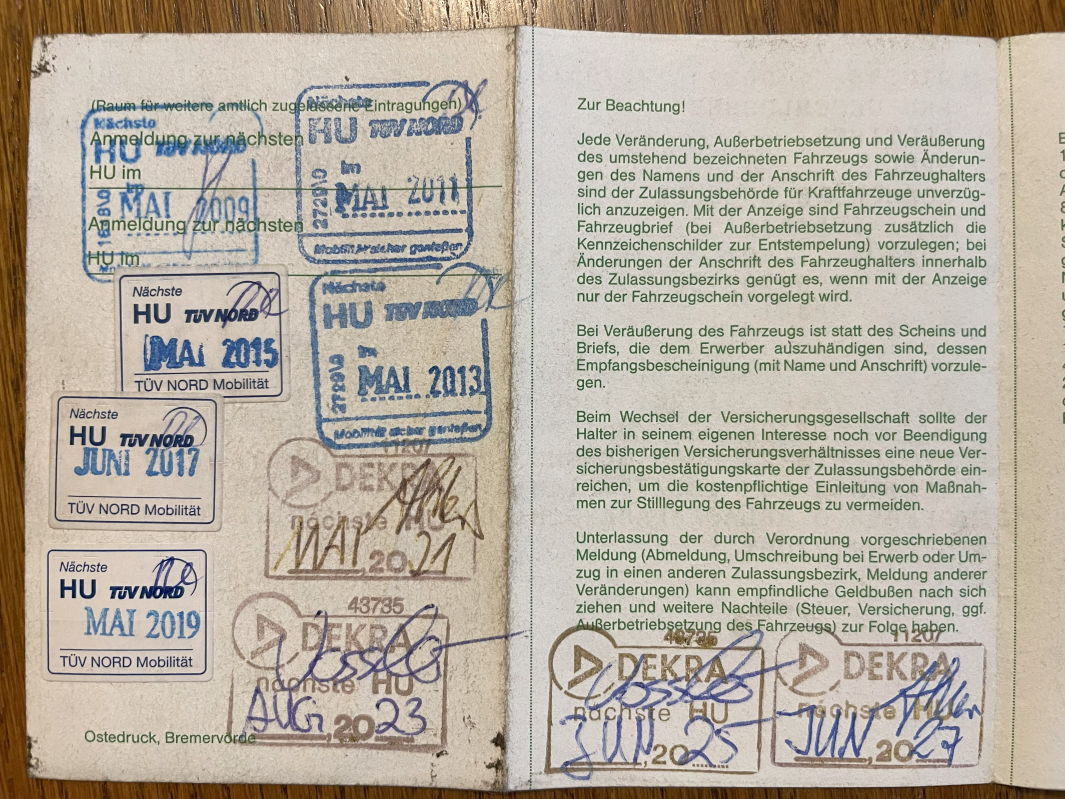 (Raum für weitere amtlich zugelassene Eintragungen)
Anmeldung zur nächsten
HU im
Anmeldung zur nächsten
HU im
Nächste
HU TÜV NORD
im
MAI 2009
Nächste
HU TÜV NORD
im
MAI 2011
2729\0
Mobilität sicher genießen
Nächste
HU TÜV NORD
MAI 2015
TÜV NORD Mobilität
Nächste
HU TÜV NORD
im
MAI 2013
2729\0
Mobilität sicher genießen
Nächste
HU TÜV NORD
JUNI 2017
TÜV NORD Mobilität
11207
DEKRA
nächste HU
MAI 2021
Nächste
HU TÜV NORD
MAI 2019
TÜV NORD Mobilität
43735
DEKRA
nächste HU
AUG, 2023
Ostedruck, Bremervörde
Zur Beachtung!
Jede Veränderung, Außerbetriebsetzung und Veräußerung
des umstehend bezeichneten Fahrzeugs sowie Änderun-
gen des Namens und der Anschrift des Fahrzeughalters
sind der Zulassungsbehörde für Kraftfahrzeuge unverzüg-
lich anzuzeigen. Mit der Anzeige sind Fahrzeugschein und
Fahrzeugbrief (bei Außerbetriebsetzung zusätzlich die
Kennzeichenschilder zur Entstempelung) vorzulegen; bei
Änderungen der Anschrift des Fahrzeughalters innerhalb
des Zulassungsbezirks genügt es, wenn mit der Anzeige
nur der Fahrzeugschein vorgelegt wird.
Bei Veräußerung des Fahrzeugs ist statt des Scheins und
Briefs, die dem Erwerber auszuhändigen sind, dessen
Empfangsbescheinigung (mit Name und Anschrift) vorzule-
gen.
Beim Wechsel der Versicherungsgesellschaft sollte der
Halter in seinem eigenen Interesse noch vor Beendigung
des bisherigen Versicherungsverhältnisses eine neue Ver-
sicherungsbestätigungskarte der Zulassungsbehörde ein-
reichen, um die kostenpflichtige Einleitung von Maßnah-
men zur Stilllegung des Fahrzeugs zu vermeiden.
Unterlassung der durch Verordnung vorgeschriebenen
Meldung (Abmeldung, Umschreibung bei Erwerb oder Um-
zug in einen anderen Zulassungsbezirk, Meldung anderer
Veränderungen) kann empfindliche Geldbußen nach sich
ziehen und weitere Nachteile (Steuer, Versicherung, ggf.
Außerbetriebsetzung des Fahrzeugs) zur Folge haben.
43735
DEKRA
nächste HU
JUN, 2025
11207
DEKRA
nächste HU
JUN, 2027